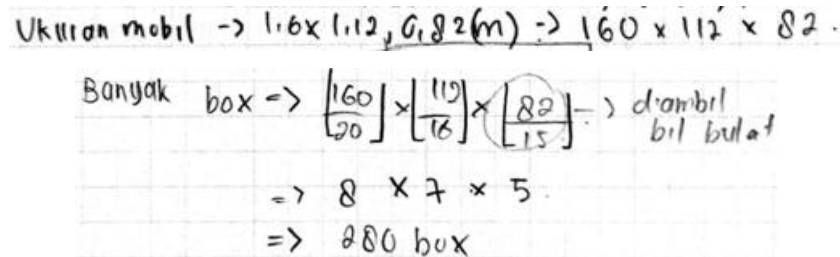 Ukuran mobil -> 1.6 x 1.12, 0,82 (m) -> 160 x 112 x 82.
Banyak box => ⌊160/20⌋ x ⌊112/16⌋ x ⌊82/15⌋ -> diambil bil bulat
=> 8 x 7 x 5.
=> 280 box